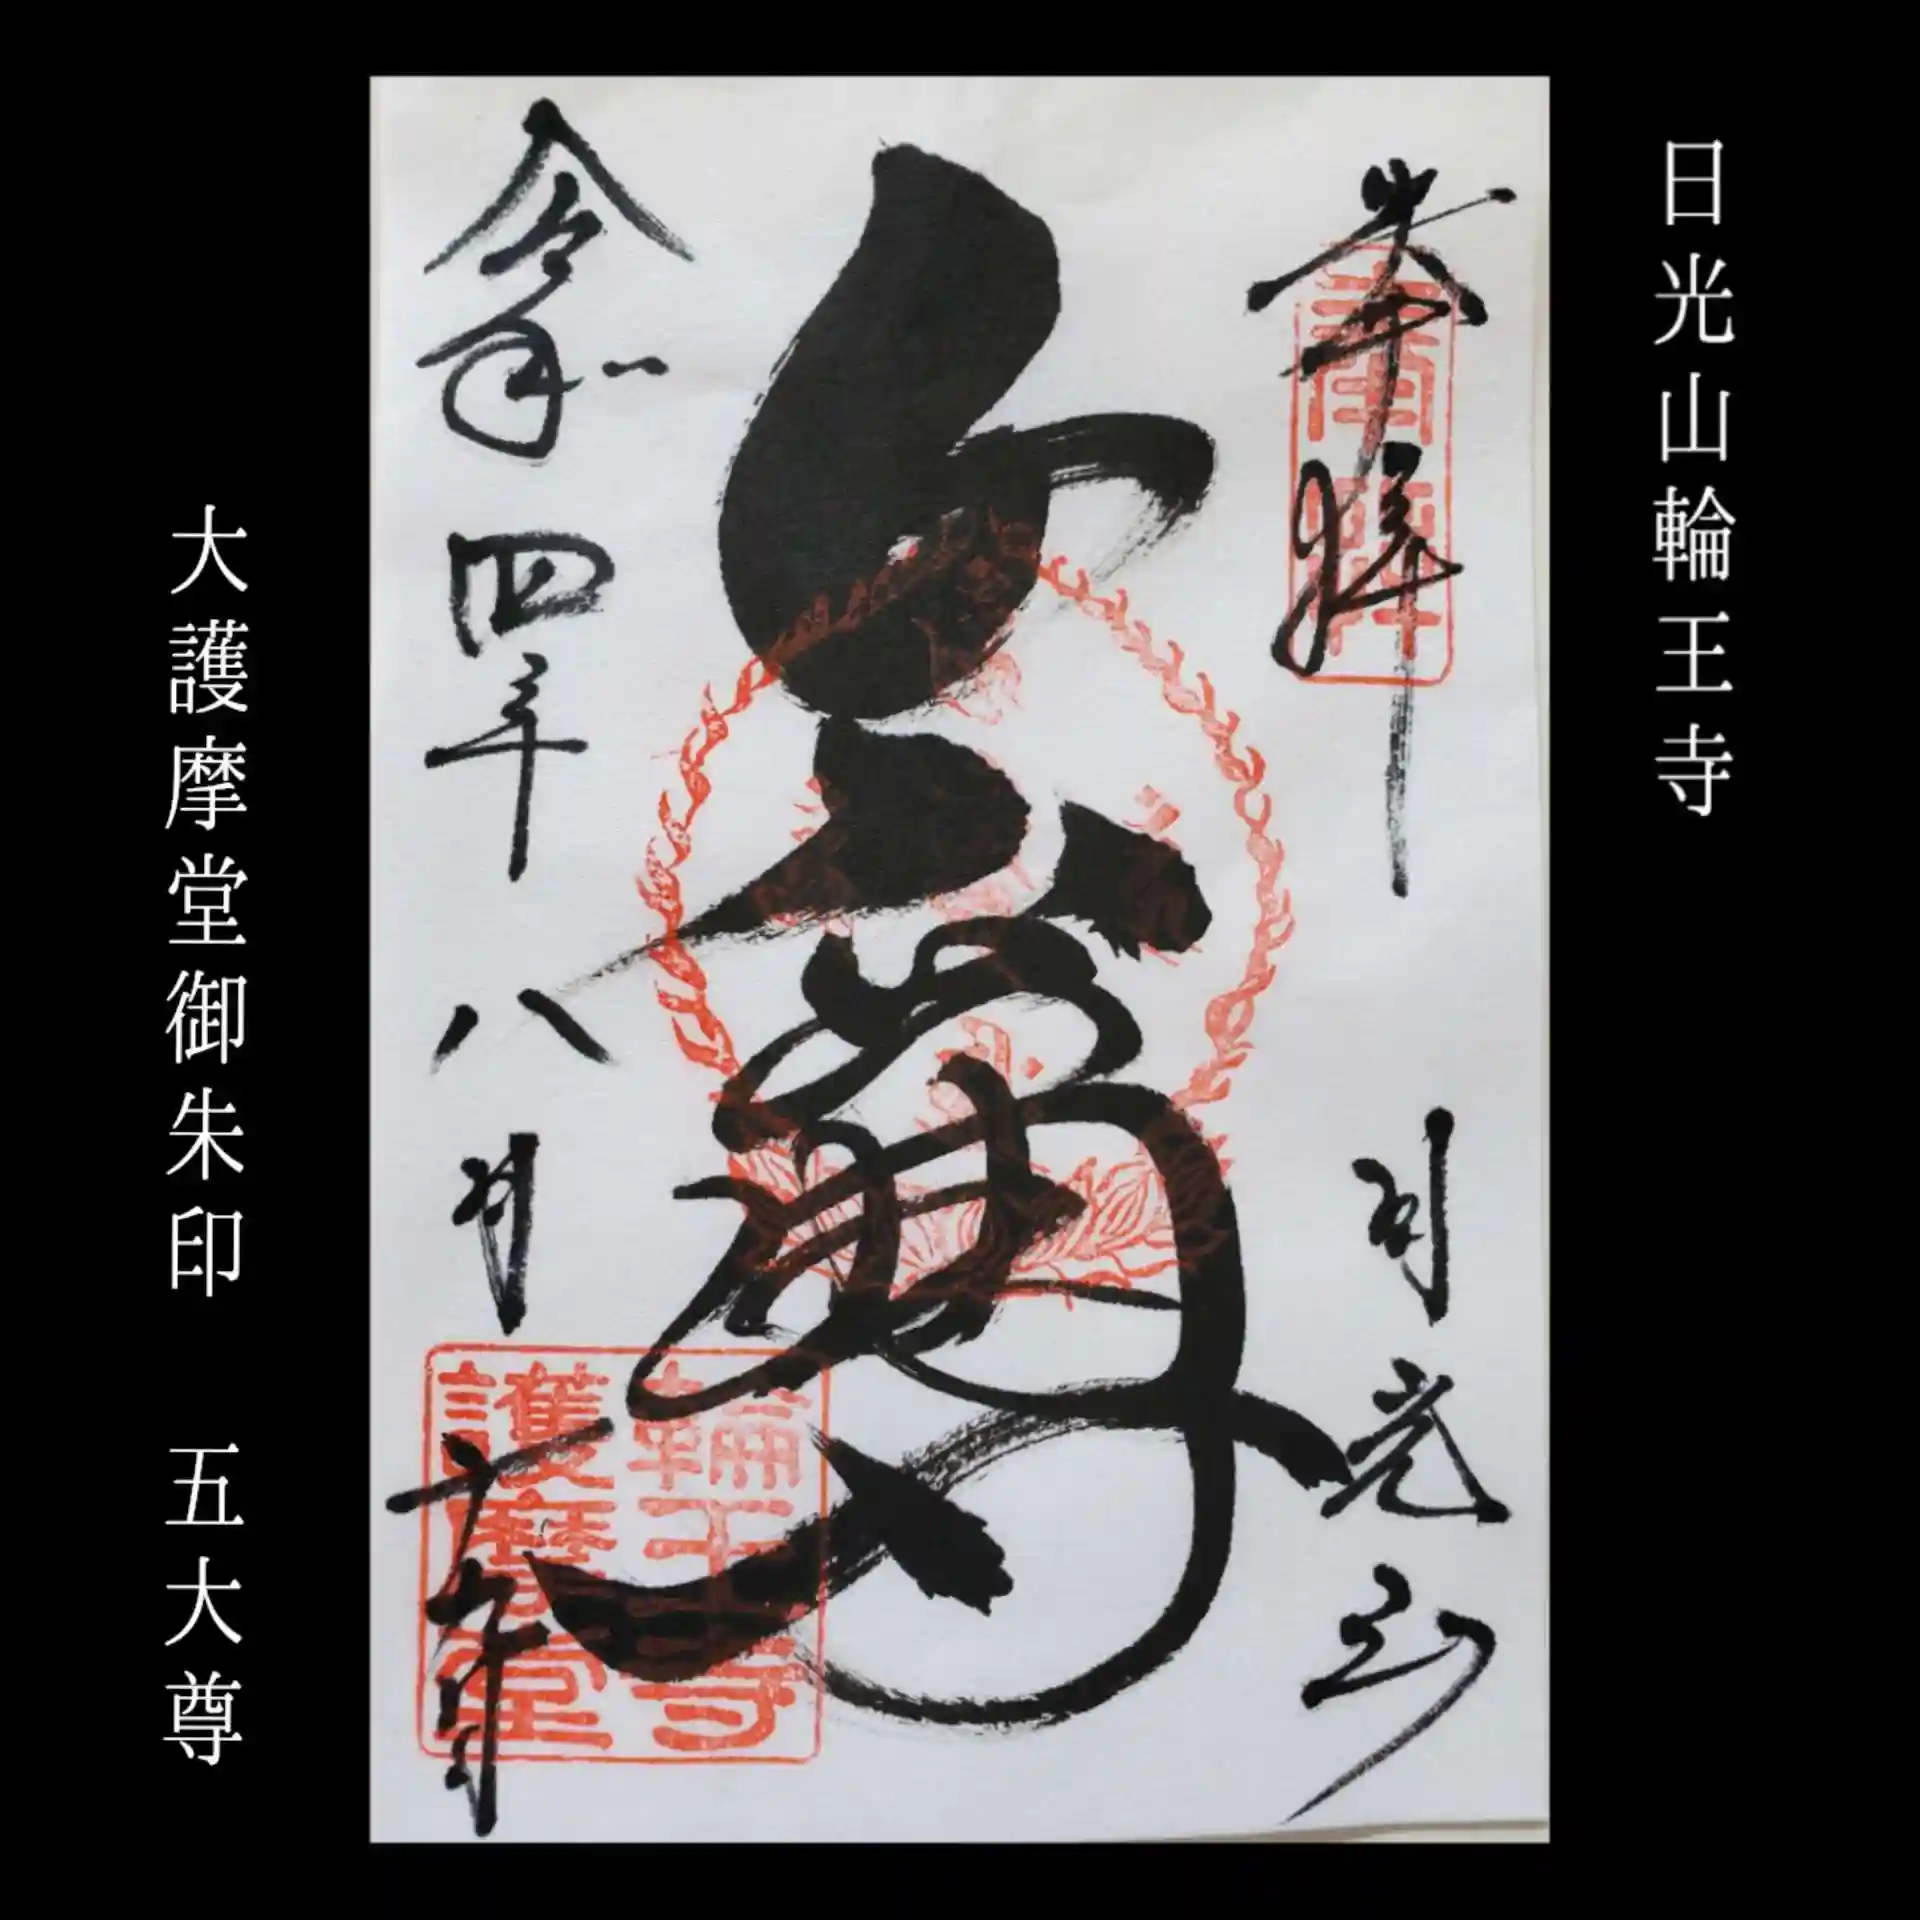 日光山輪王寺
奉拝
日光山
五大尊
令和四年八月六日
輪王寺
護摩堂
大護摩堂御朱印 五大尊